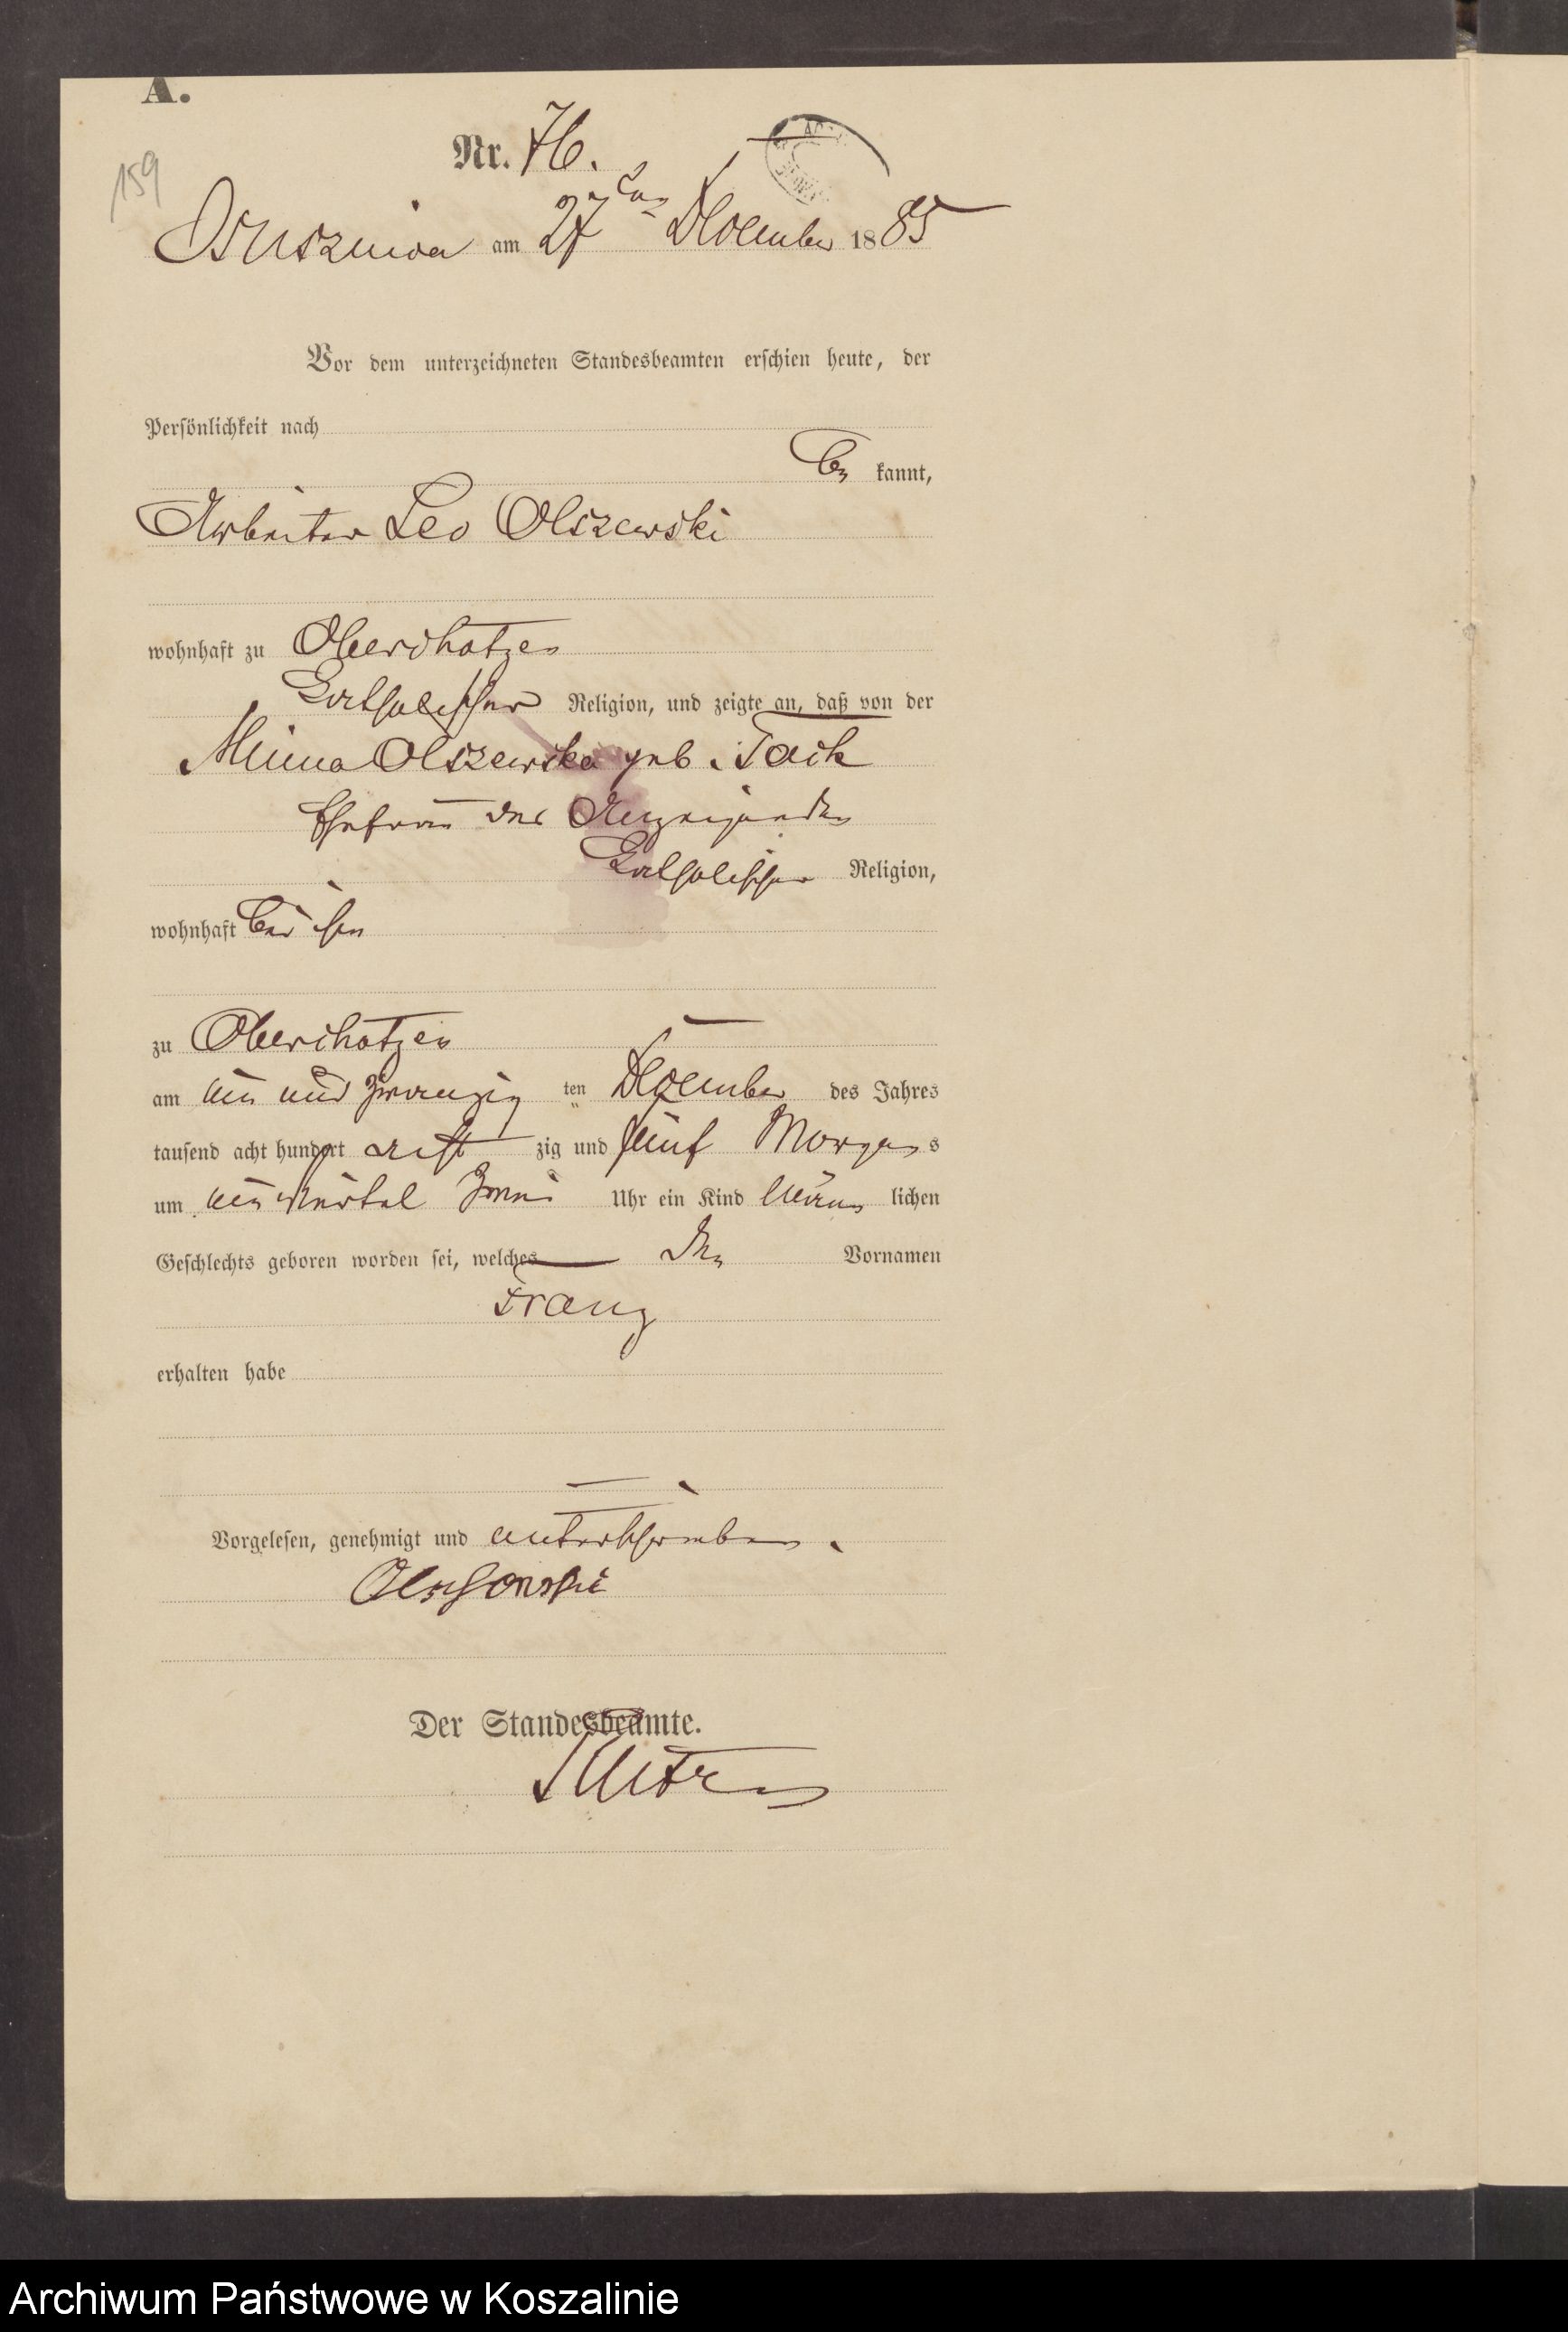 A.
159
Nr. 76.
am 27ten Dezember 1885
Vor dem unterzeichneten Standesbeamten erschien heute, der
Persönlichkeit nach
be kannt,
Arbeiter Leo Olszewski
wohnhaft zu
katholischer Religion, und zeigte an, daß von der
Minna Olszewska geb. Tack
Ehefrau des Anzeigenden
katholischer Religion,
wohnhaft bei ihm
zu
am ein und zwanzig ten Dezember des Jahres
tausend acht hundert acht zig und fünf Morgens
um ein viertel zwei Uhr ein Kind männ lichen
Geschlechts geboren worden sei, welches den Vornamen
Franz
erhalten habe
Vorgelesen, genehmigt und unterschrieben.
Der Standesbeamte.
Archiwum Państwowe w Koszalinie